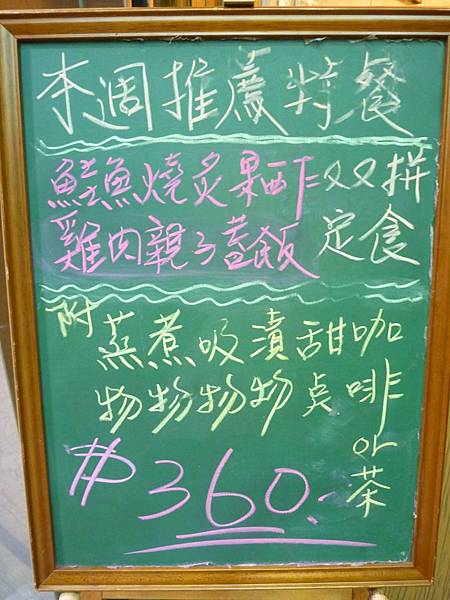 本週推薦特餐
鮭魚燒炙果酢
雞肉親子蓋飯
双拼
定食
附
蒸物
煮物
吸物
漬物
甜点
咖啡or茶
$360.